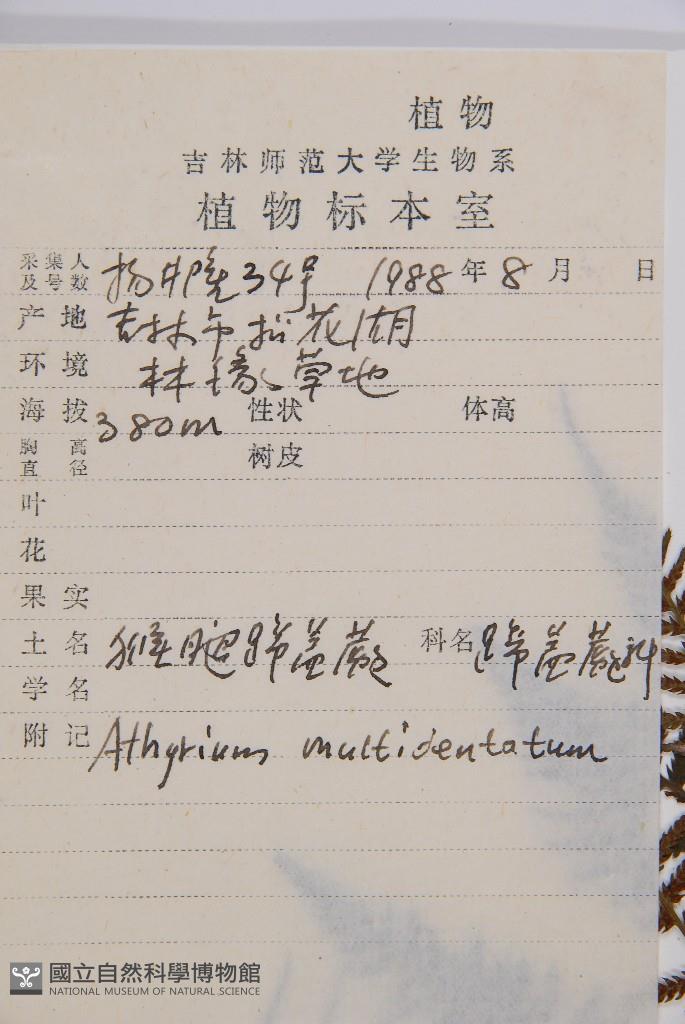 植物
吉林师范大学生物系
植物标本室
采集人及号数 34号 1988年8月 日
产地 吉林市松花湖
环境 林缘草地
海拔 380m 性状 体高
胸高直径 树皮
叶
花
果实
土名 猴腿蹄盖蕨 科名 蹄盖蕨科
学名
附记 Athyrium multidentatum
國立自然科學博物館
NATIONAL MUSEUM OF NATURAL SCIENCE